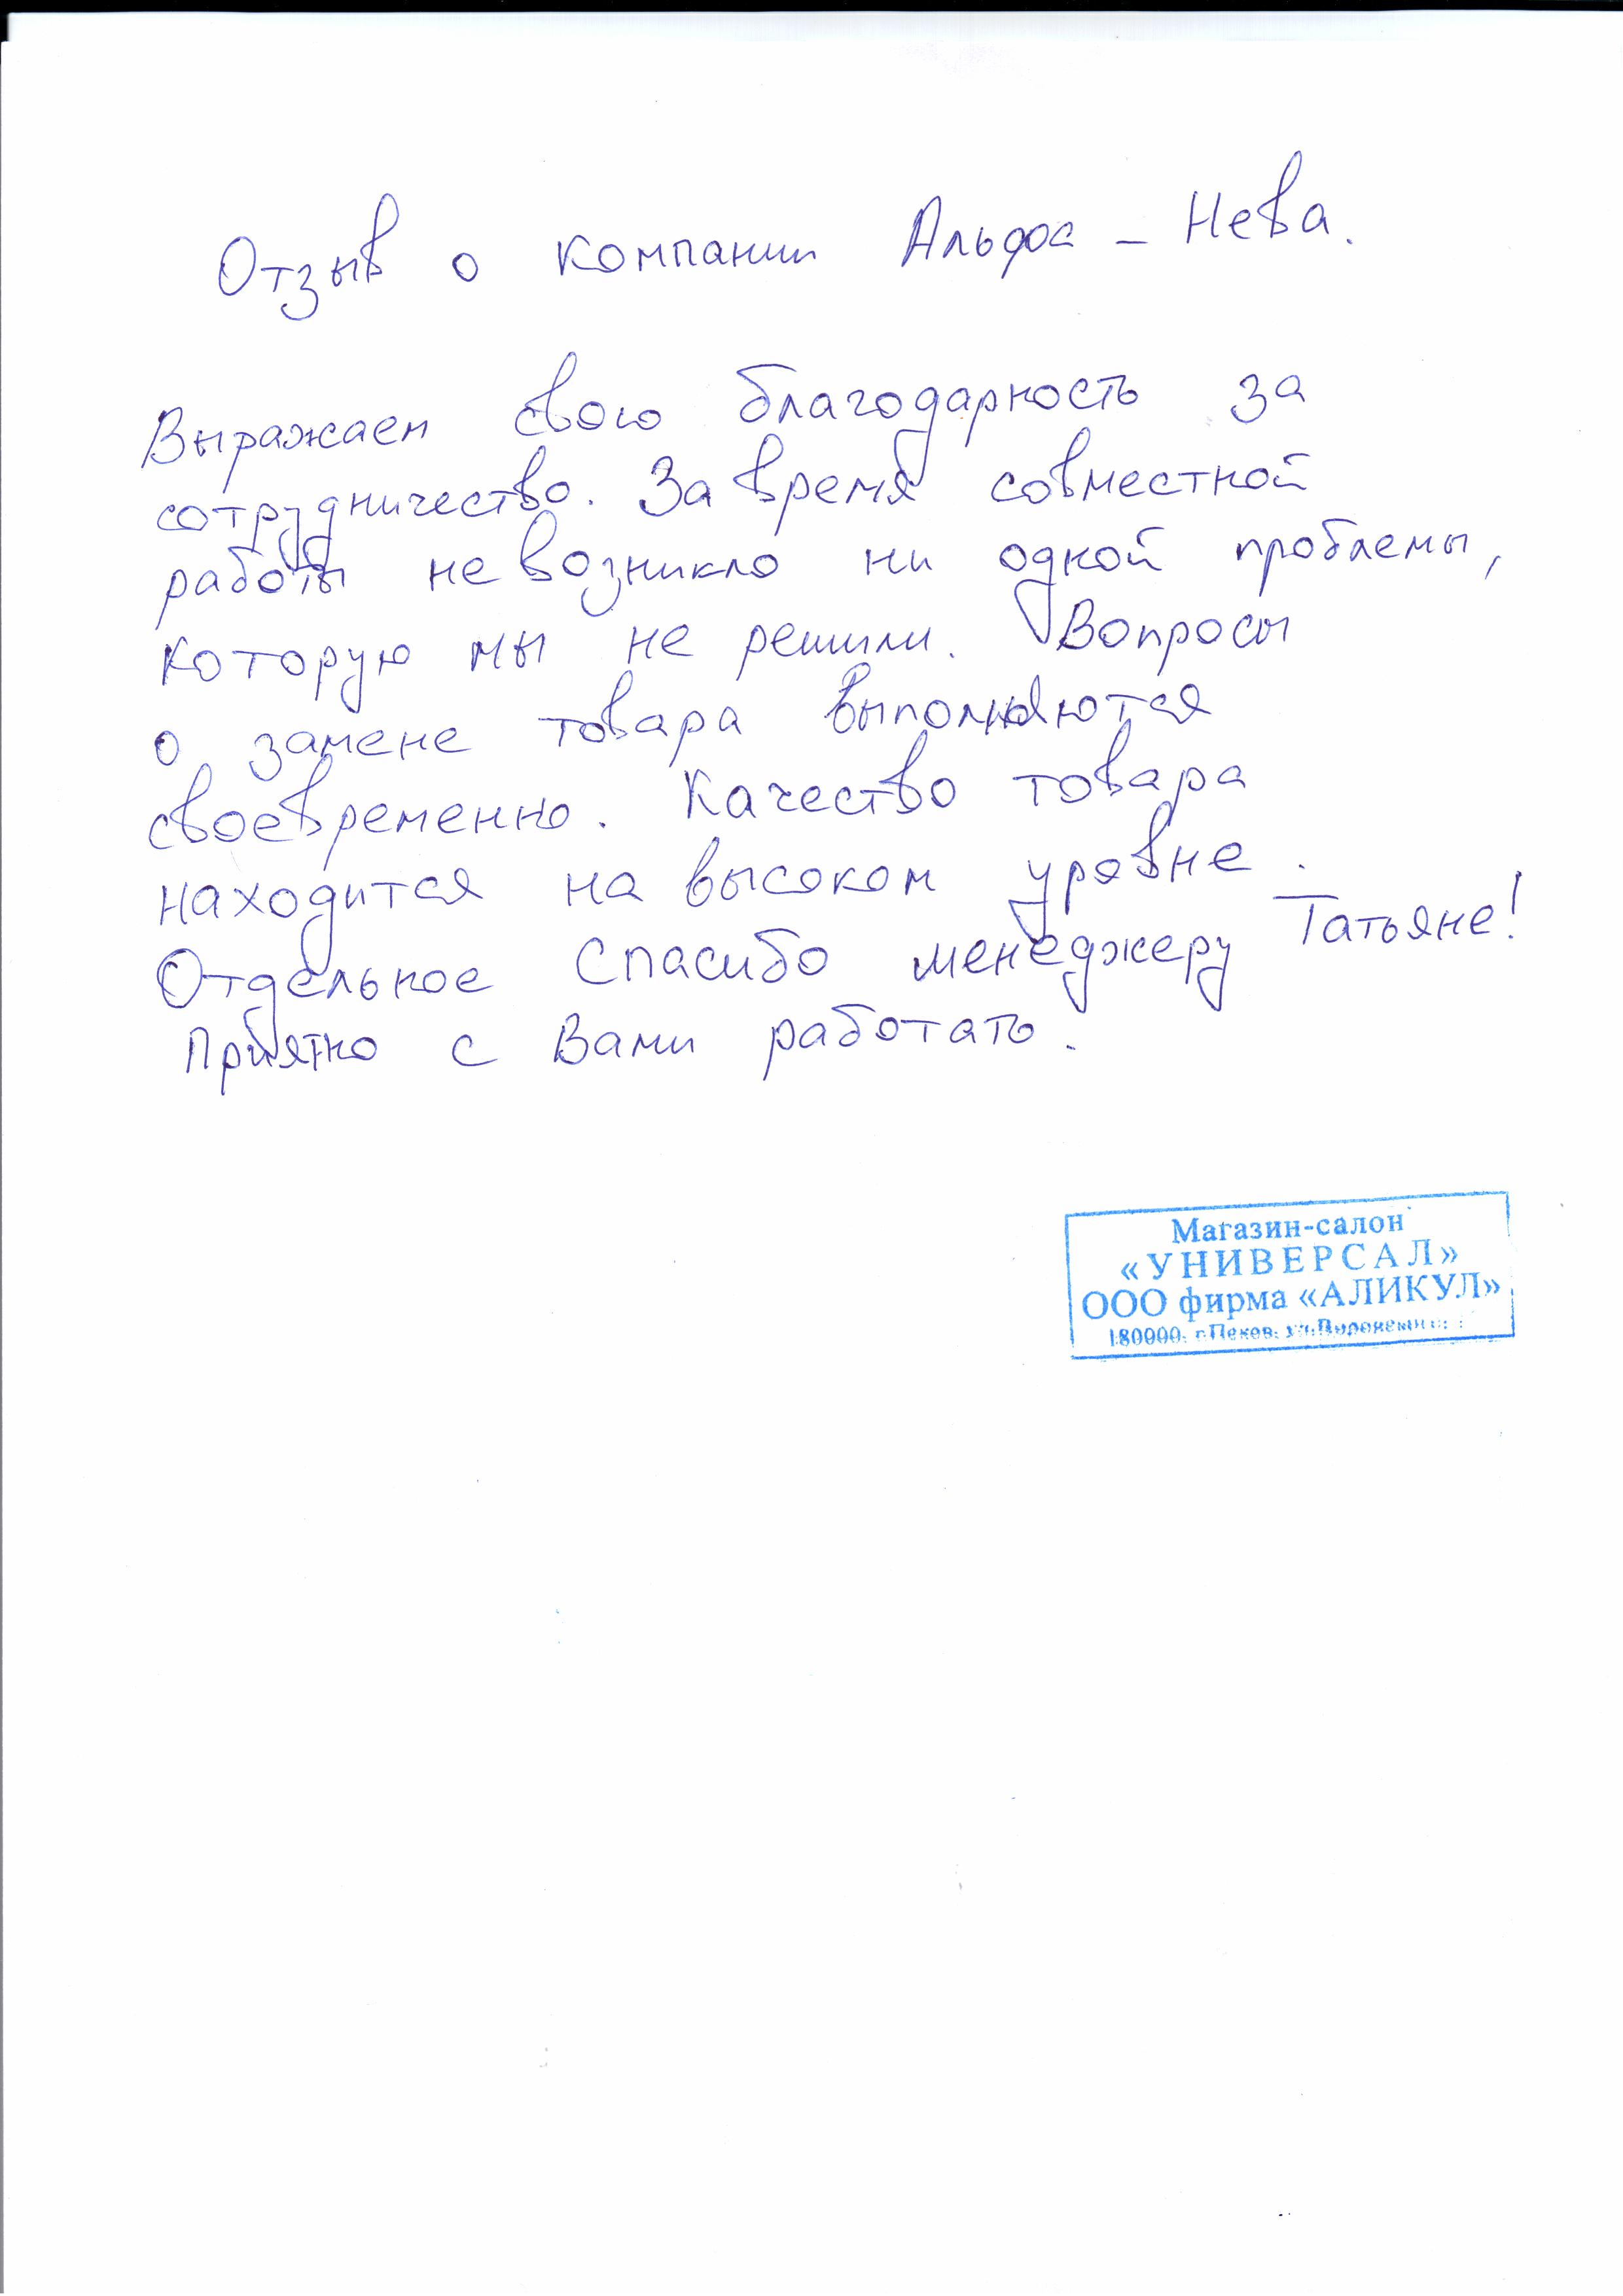 Отзыв о компании Альфа - Нева.
Выражаем свою благодарность за
сотрудничество. За время совместной
работы не возникло ни одной проблемы,
которую мы не решили. Вопросы
о замене товара выполняются
своевременно. Качество товара
находится на высоком уровне.
Отдельное Спасибо менеджеру Татьяне!
Приятно с Вами работать.
Магазин-салон
«УНИВЕРСАЛ»
ООО фирма «АЛИКУЛ»
180000, г.Псков, ул.